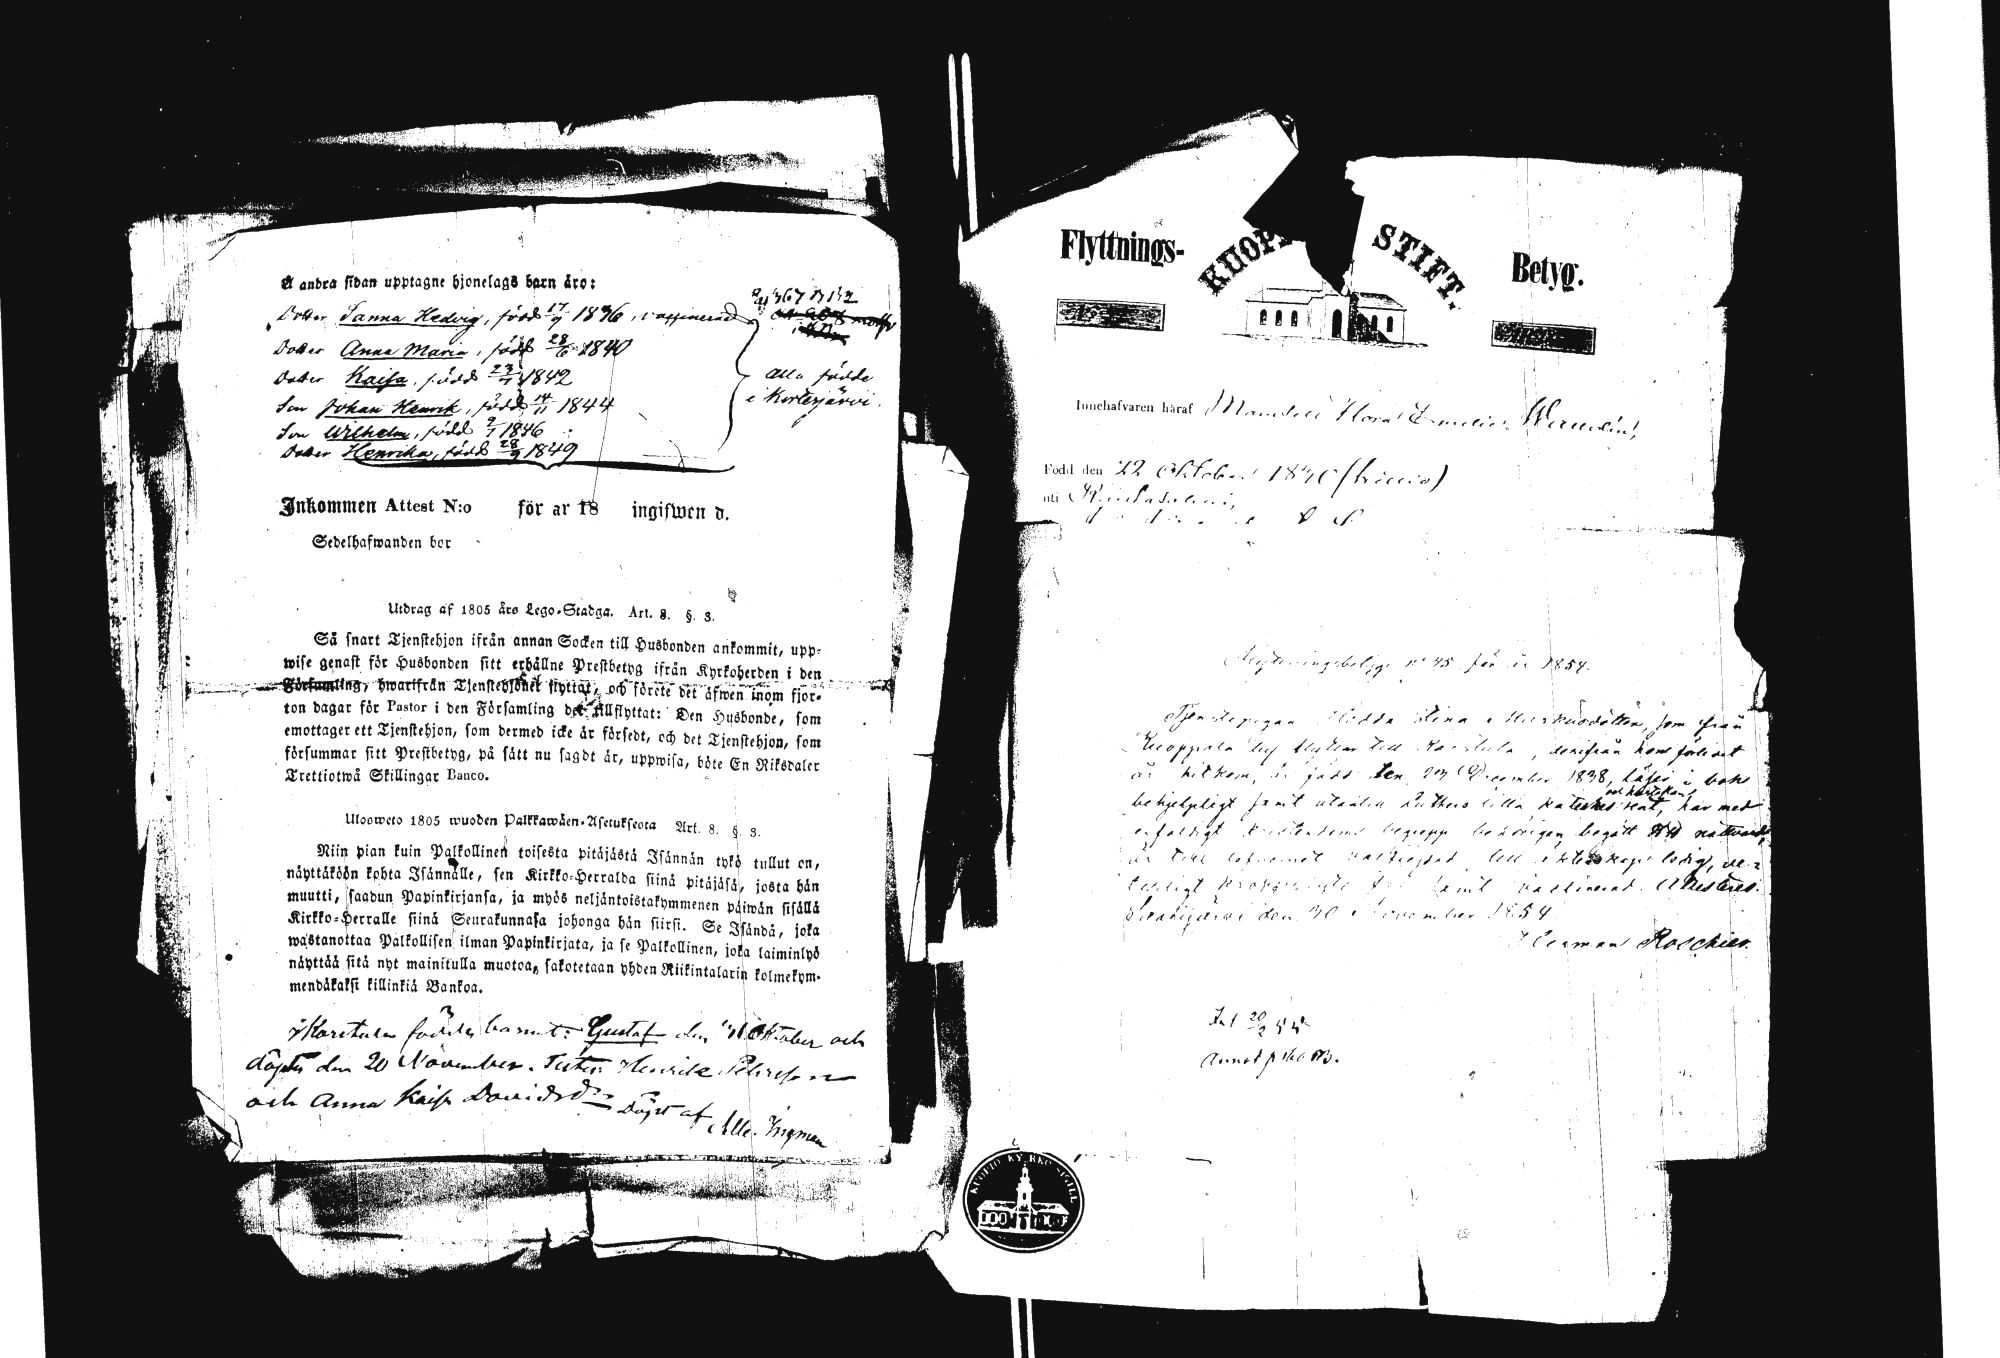 Å andra sidan upptagne hjonelags barn äro:
Dotter Sanna Hedvig, född 17/9 1836, vaccinerad
Dotter Anna Maria, född 28/6 1840
Dotter Kaisa, född 23/7 1842
Son Johan Henrik, född 14/11 1844
Son Wilhelm, född 9/7 1846
Dotter Henrika, född 28/9 1849
alla födde
i Kortesjärvi.
Inkommen Attest N:o för år 18 ingifwen d.
Sedelhafwanden bor
Utdrag af 1805 års Lego-Stadga. Art. 8. §. 3.
Så snart Tjenstehjon ifrån annan Socken till Husbonden ankommit, upp-
wise genast för Husbonden sitt erhållne Prestbetyg ifrån Kyrkoherden i den
Församling, hwarifrån Tjenstehjonet flyttat, och förete det äfwen inom fjor-
ton dagar för Pastor i den Församling det tillflyttat: Den Husbonde, som
emottager ett Tjenstehjon, som dermed icke är försedt, och det Tjenstehjon, som
försummar sitt Prestbetyg, på sätt nu sagdt är, uppwisa, böte En Riksdaler
Trettiotwå Skillingar Banco.
Ulosweto 1805 wuoden Palkkawäen-Asetuksesta Art. 8. §. 3.
Niin pian kuin Palkollinen toisesta pitäjästä Isännän tykö tullut on,
näyttäköön kohta Isännälle, sen Kirkko-Herralda siinä pitäjäsä, josta hän
muutti, saadun Papinkirjansa, ja myös neljäntoistakymmenen päiwän sisällä
Kirkko-Herralle siinä Seurakunnasa johonga hän siirsi. Se Isändä, joka
wastanottaa Palkollisen ilman Papinkirjata, ja se Palkollinen, joka laiminlyö
näyttää sitä nyt mainitulla muotoa, sakotetaan yhden Riikintalarin kolmekym-
mendäkaksi killinkiä Bankoa.
i Karstula föddes barnet: Gustaf den 31 Oktober och
döptes den 20 November. Testes: Henrik Petersson
och Anna Kaisa Davidsdr Döpt af
Alle. Ingman
Flyttnings- KUOPIO STIFT. Betyg.
Innehafvaren häraf Mamsell Flora Emelie Wandelin,
Född den 22 Oktober 1830
uti
Flyttningsbetyg nº 45 för år 1854.
Tjenstepigan Hedda Stina Markusdotter, som från
Knoppala by flyttar till Karstula, derifrån hon förlidet
år hitkom, är född den 23 December 1838, läser i bok
behjelpligt samt utantill Luthers lilla katekes, har med
enfaldigt kristendoms begrepp behörigen begått HH nattvard,
är till lefvernet välfrejdad, till äktenskap ledig,
samt vaccinerad. Attesteras.
Saarijärvi den 30 November 1854
Herman Roschier.
Inl 20/2 55
KUOPIO KYRKO SIGILL